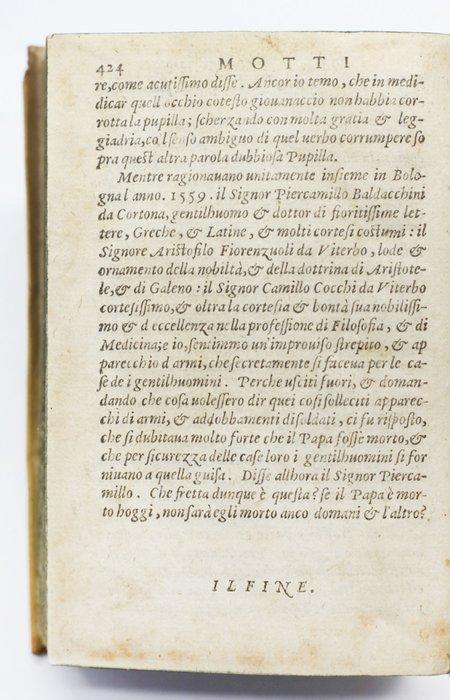 424 MOTTI
re, come acutissimo disse. Ancor io temo, che in medi-
dicar quell occhio cotesto giouanaccio non habbia cor-
rotta la pupilla; scherzando con molta gratia & leg-
giadria, co'l senso ambiguo di quel uerbo corrumpere so
pra quest altra parola dubbiosa Pupilla.
Mentre ragionauano unitamente insieme in Bolo-
gna l anno. 1559. il Signor Piercamillo Baldacchini
da Cortona, gentilhuomo & dottor di fioritissime let-
tere, Greche, & Latine, & molti cortesi costumi: il
Signore Aristofilo Fiorenzuoli da Viterbo, lode &
ornamento della nobiltà, & della dottrina di Aristote-
le, & di Galeno: il Signor Camillo Cocchi da Viterbo
cortesissimo, & oltra la cortesia & bontà sua nobilissi-
mo & d eccellenza nella professione di Filosofia, & di
Medicina; e io, sentimmo un'improuiso strepito, & ap
parecchio d armi, che secretamente si faceua per le ca-
se de i gentilhuomini. Perche usciti fuori, & doman-
dando che cosa uolessero dir quei cosi solleciti apparec-
chi di armi, & addobbamenti di soldati, ci fu risposto,
che si dubitaua molto forte che il Papa fosse morto, &
che per sicurezza delle case loro i gentilhuomini si for
niuano a quella guisa. Disse allhora il Signor Pierca-
millo. Che fretta dunque è questa? se il Papa è mor-
to hoggi, non sarà egli morto anco domani & l'altro?
IL FINE.